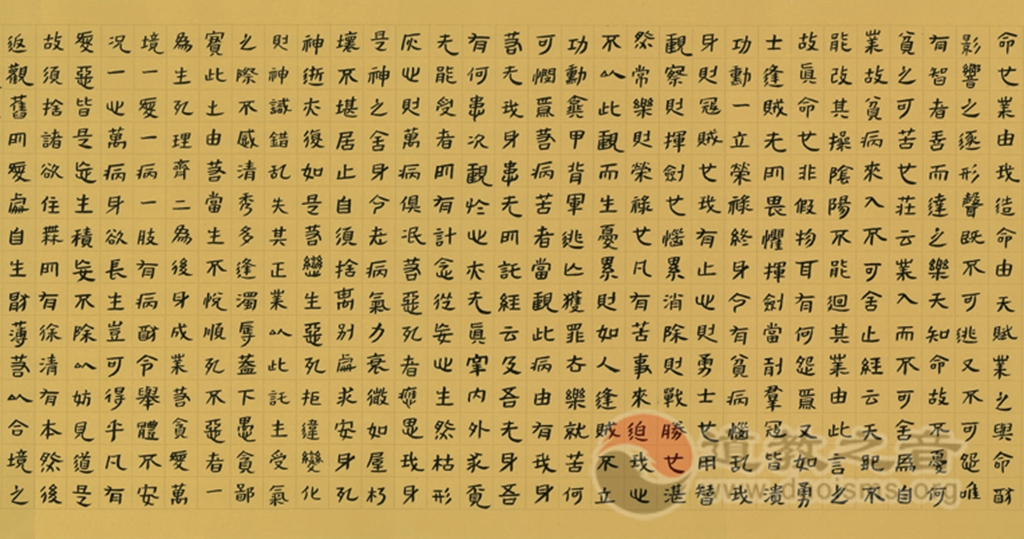 命也業由我造命由天賦業之與命猶
影響之逐形聲既不可逃又不可怨唯
有智者善而達之樂天知命故不憂何
貧之可苦也莊云業入而不可舍爲自
業故貧病來入不可舍止經云天地不
能改其操陰陽不能迴其業由此言之
故真命也非假物耳有何怨焉又如勇
士逢賊无所畏懼揮劍當前羣寇皆潰
功勳一立榮祿終身今有貧病惱亂我
身則寇賊也我有正心則勇士也用智
觀察則揮劍也惱累消除則戰勝也湛
然常樂則榮祿也凡有苦事來迫我心
不以此觀而生憂累則如人逢賊不立
功勳棄甲背軍逃亡獲罪去樂就苦何
可憫焉若病苦者當觀此病由有我身
若无我身患无所託經云及吾无身吾
有何患次觀於心亦无真宰內外求覓
无能受者所有計念從妄心生然枯形
灰心則萬病俱泯若惡死者應思我身
是神之舍身今老病氣力衰微如屋朽
壞不堪居止自須捨离別處求安身死
神逝亦復如是若戀生惡死拒違變化
則神識錯亂失其正業以此託生受氣
之際不感清秀多逢濁辱蓋下愚貪鄙
實此之由若當生不悅順死不惡者一
為生死理齊二為後身成業若貪愛萬
境一愛一病一肢有病猶令舉體不安
況一心萬病身欲長生豈可得乎凡有
愛惡皆是妄生積妄不除以妨見道是
故須捨諸欲住無所有徐清有本然後
返觀舊所愛處自生厭薄若以合境之
道教之音
www.daoisms.org